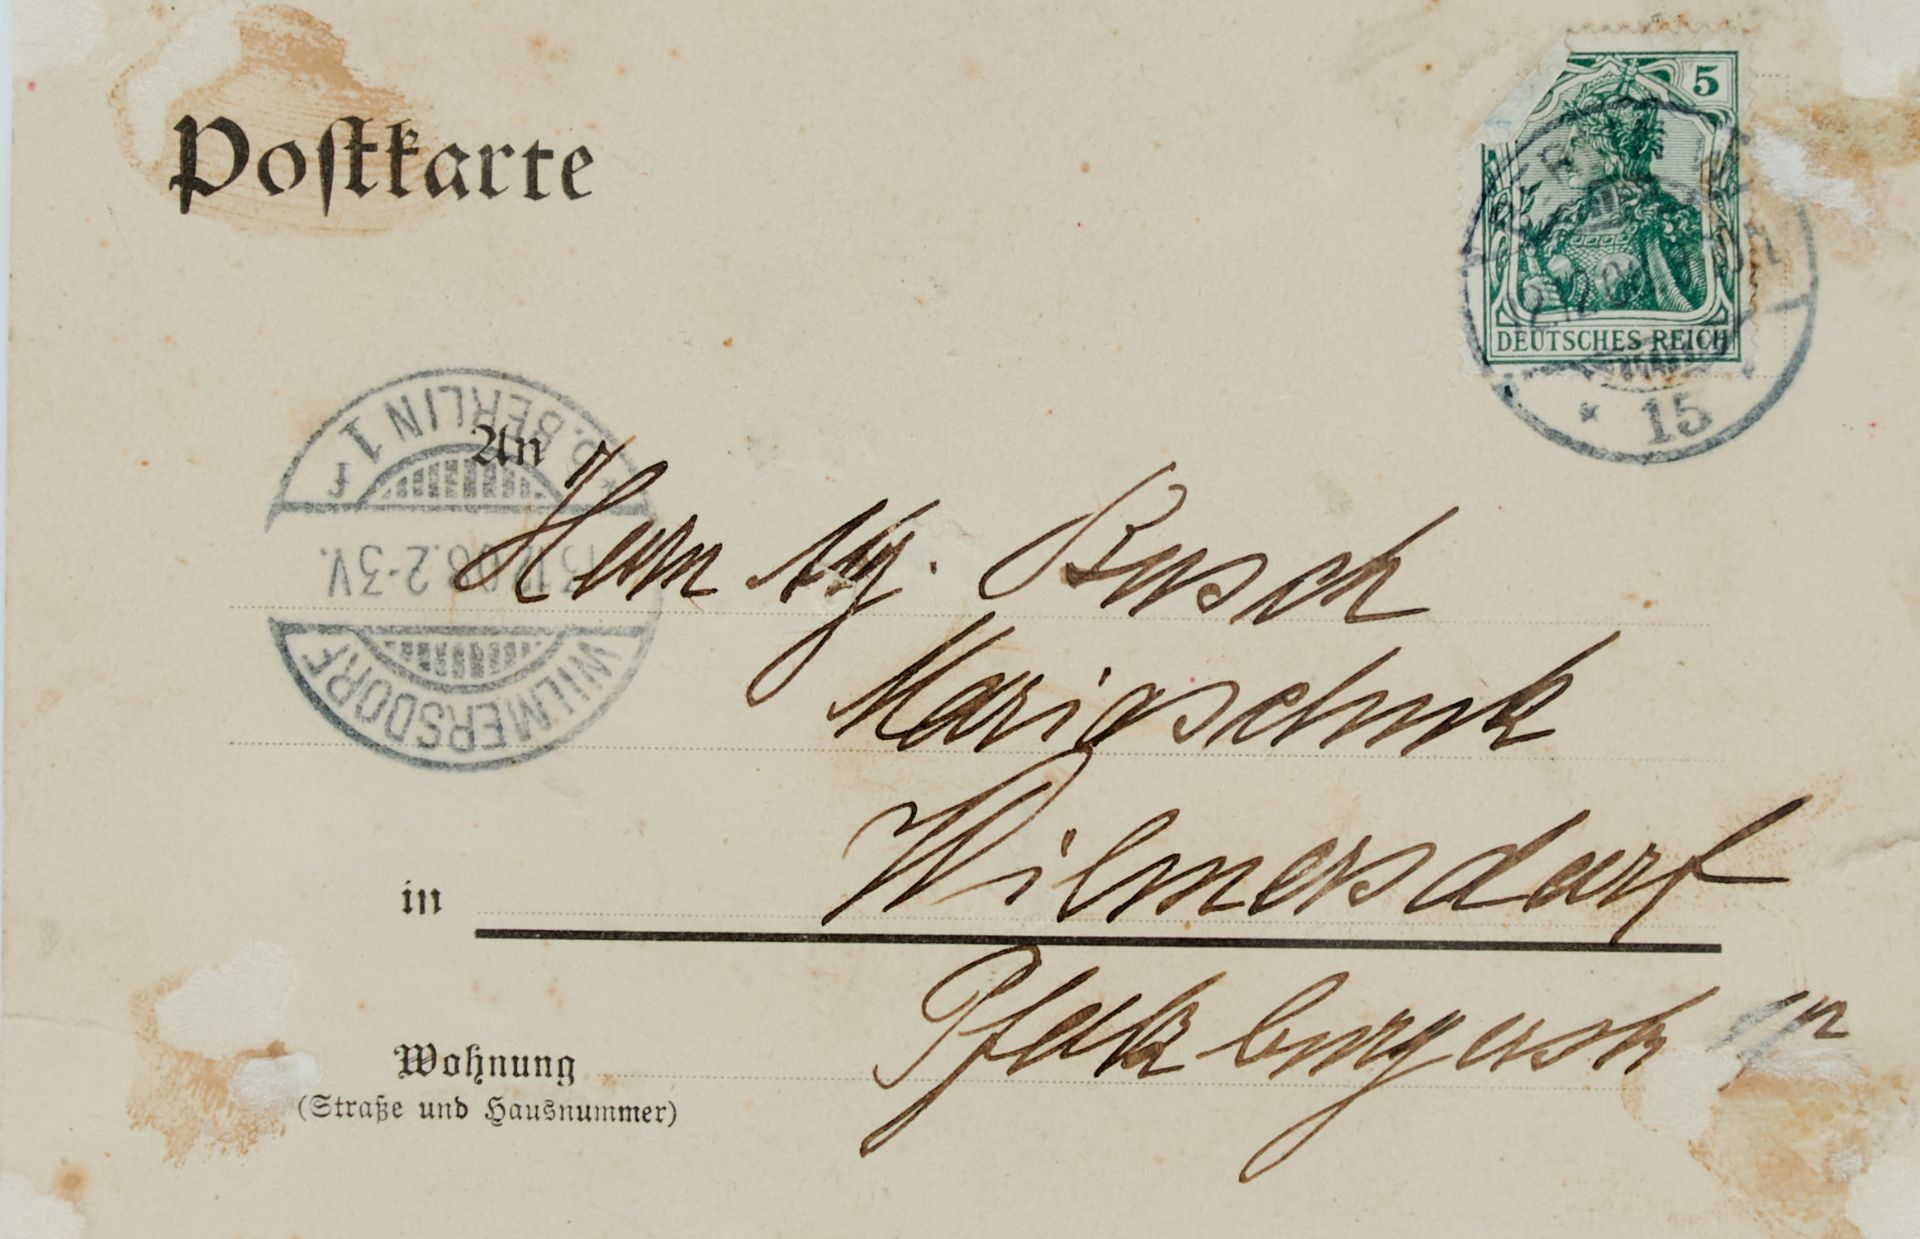 Postkarte
5
DEUTSCHES REICH
* 15
BERLIN 1
f
13.12.08.2-3V.
WILMERSDORF
An
Herrn Aug. Busch
Wilmersdorf
in
Pfalzburgerstr
Wohnung
(Straße und Hausnummer)